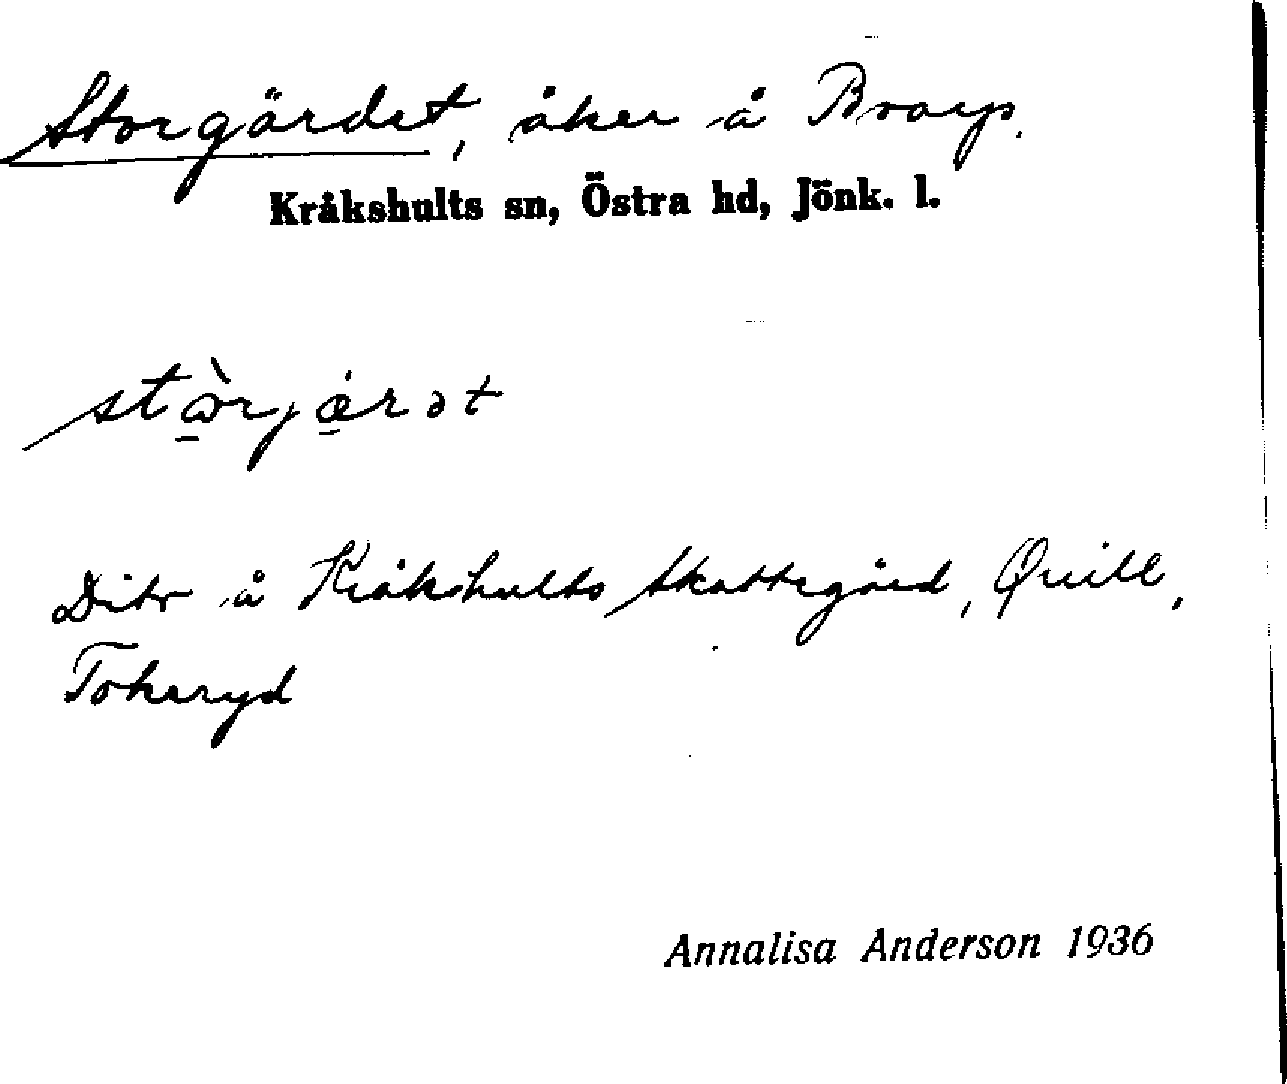 Storgärdet, åker å Broarp.
Kråkshults sn, Östra hd, Jönk. l.
Dito å Kråkshults Skattegård, Quill,
Tokaryd
Annalisa Anderson 1936